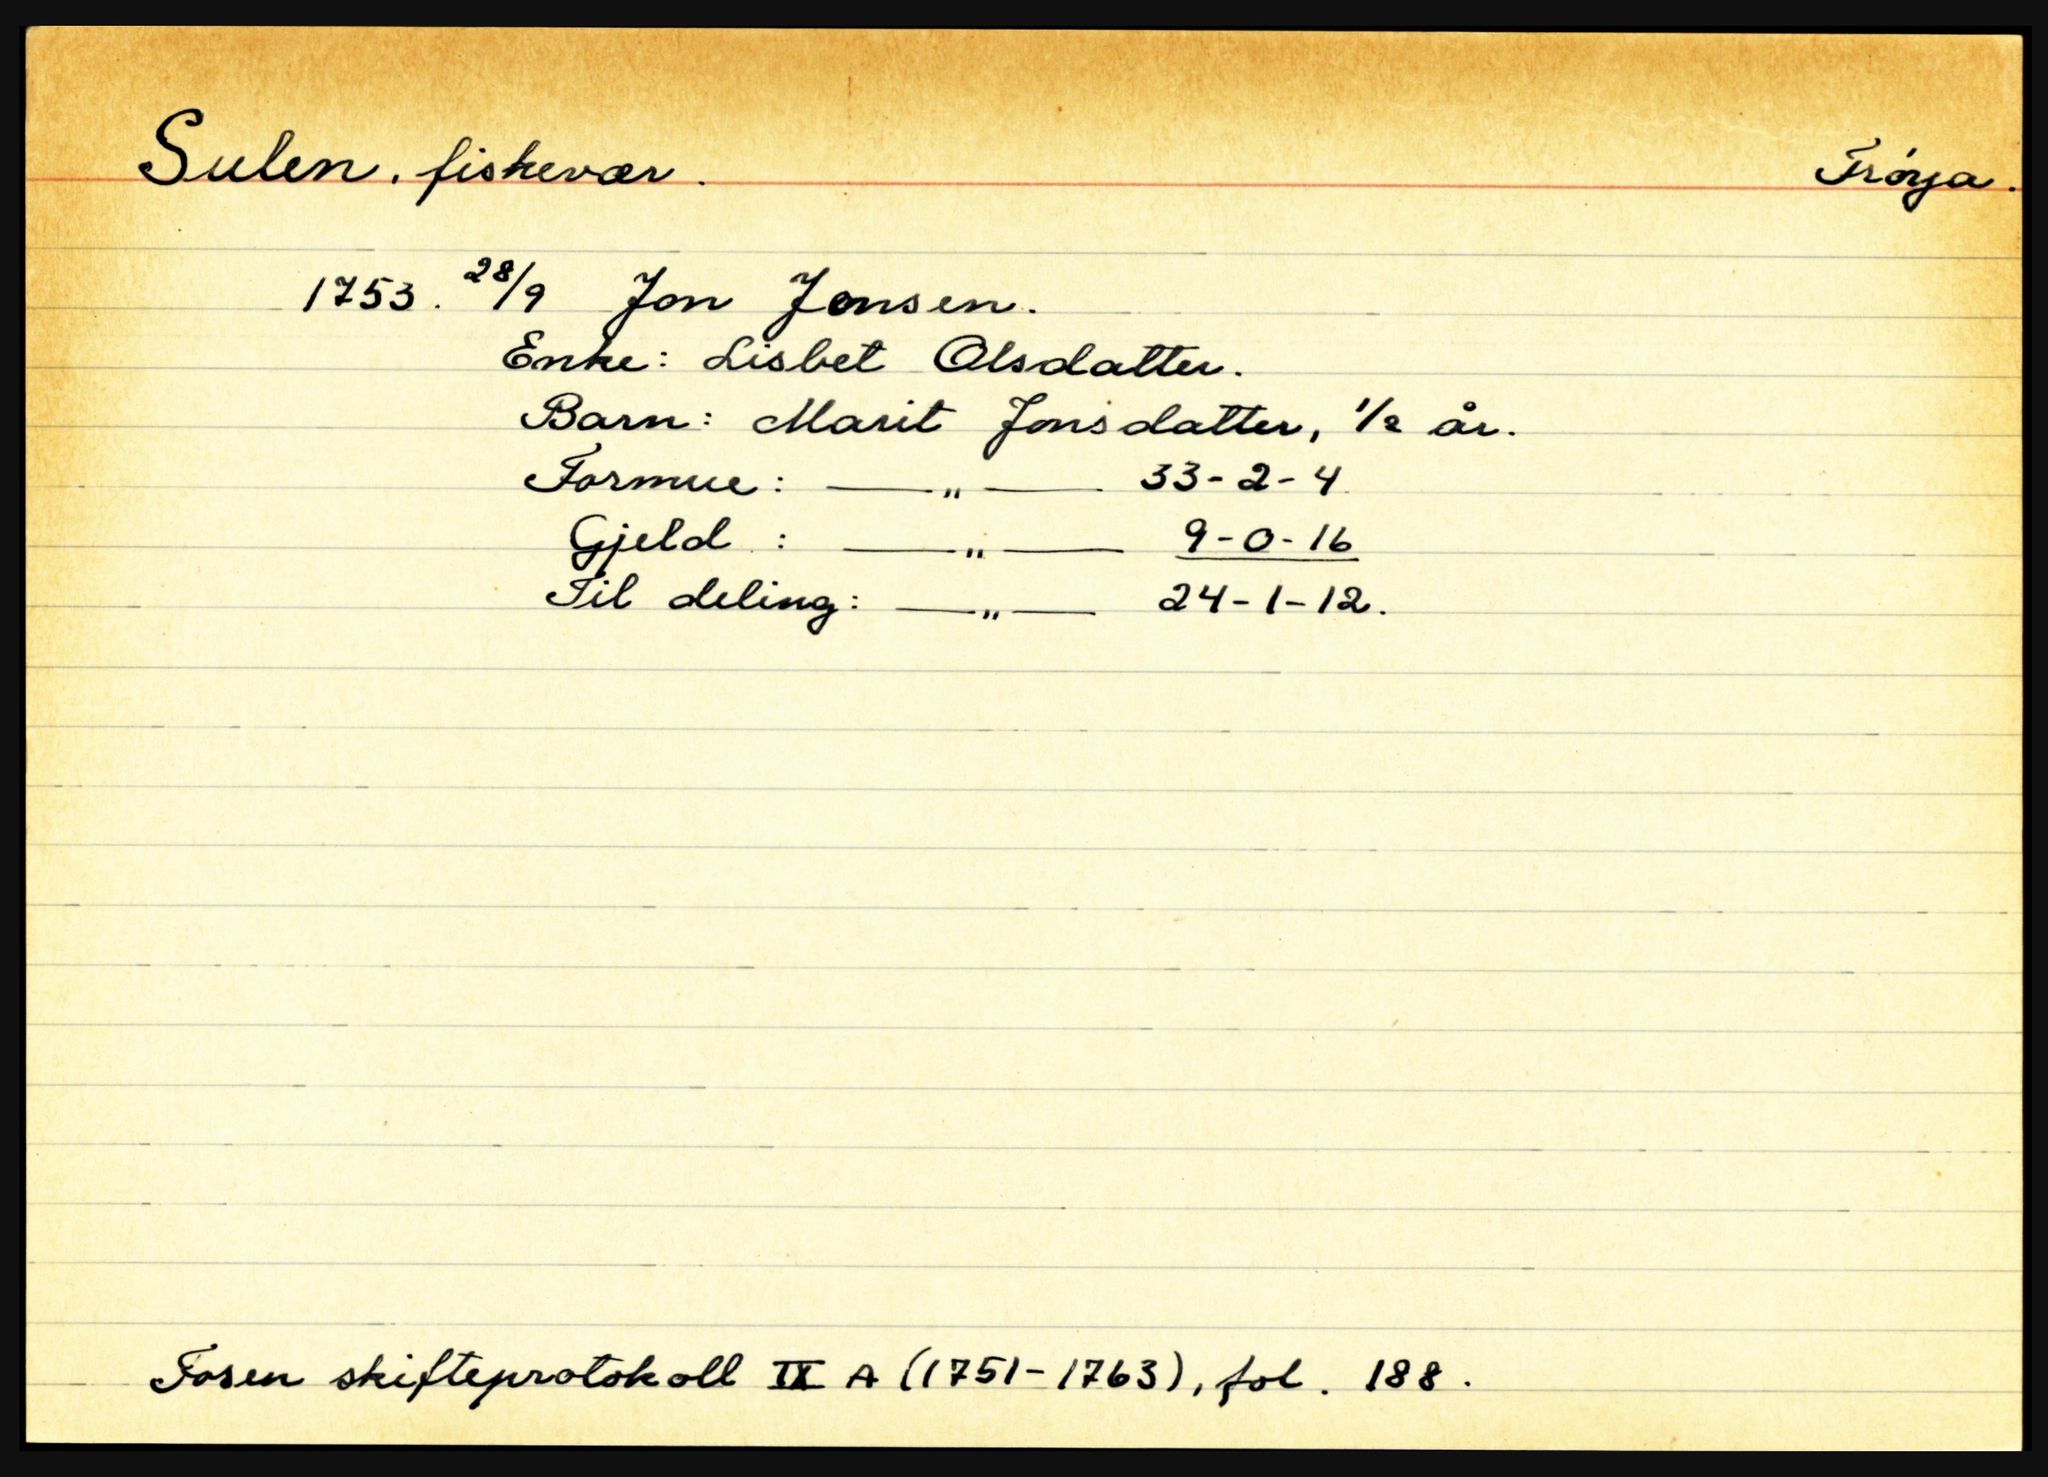 Sulen. fiskevær. Frøya.
1753. 28/9 Jon Jonsen.
Enke: Lisbet Olsdatter.
Barn: Marit Jonsdatter, 1/2 år.
Formue: —„— 33-2-4
Gjeld: —„— 9-0-16
Til deling: —„— 24-1-12.
Fosen skifteprotokoll IX A (1751-1763), fol. 188.